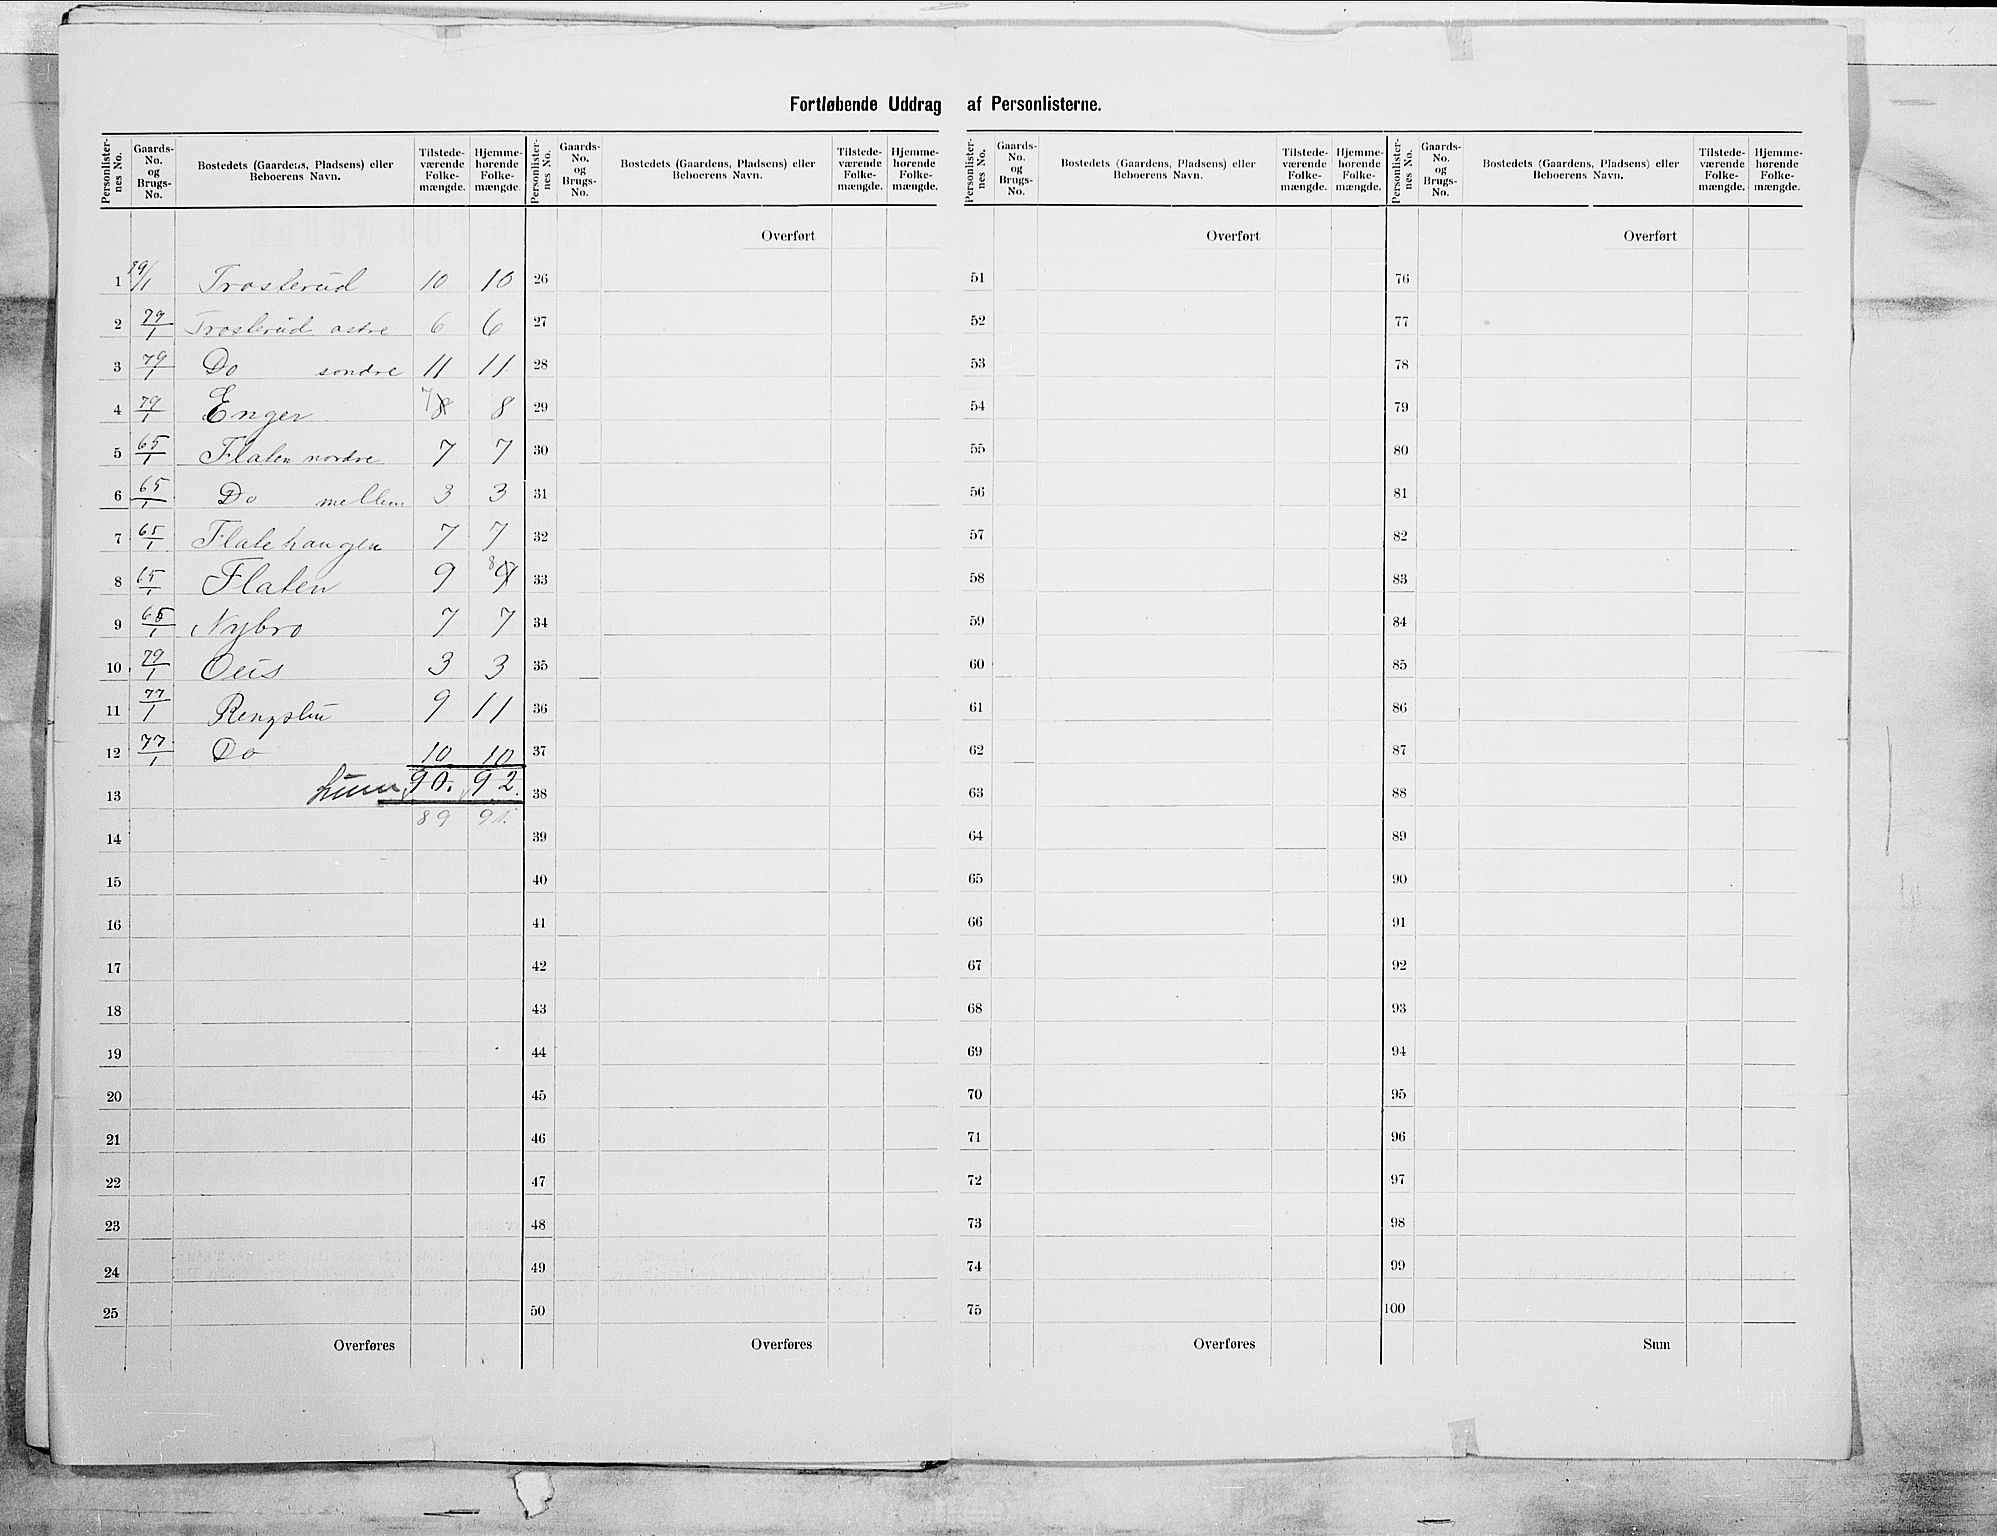 Fortløbende Uddrag af Personlisterne.
Personlister-nes No. | Gaards-No. og Brugs-No. | Bostedets (Gaardens, Pladsens) eller Beboerens Navn. | Tilstede-værende Folke-mængde. | Hjemme-hørende Folke-mængde.
1 79/1 Trosterud 10 10
2 79/1 Trosterud østre 6 6
3 79/1 Do søndre 11 11
4 79/1 Enger 7 8 8
5 65/1 Flaten nordre 7 7
6 65/1 Do mellem 3 3
7 65/1 Flatehaugen 7 7
8 65/1 Flaten 9 8 9
9 65/1 Nybro 7 7
10 79/1 3 3
11 77/1 9 11
12 77/1 Do 10 10
13 Sum 90. 92.
89 91.
14
15
16
17
18
19
20
21
22
23
24
25
Overføres
Personlister-nes No. | Gaards-No. og Brugs-No. | Bostedets (Gaardens, Pladsens) eller Beboerens Navn. | Tilstede-værende Folke-mængde. | Hjemme-hørende Folke-mængde.
Overført
26
27
28
29
30
31
32
33
34
35
36
37
38
39
40
41
42
43
44
45
46
47
48
49
50
Overføres
Personlister-nes No. | Gaards-No. og Brugs-No. | Bostedets (Gaardens, Pladsens) eller Beboerens Navn. | Tilstede-værende Folke-mængde. | Hjemme-hørende Folke-mængde.
Overført
51
52
53
54
55
56
57
58
59
60
61
62
63
64
65
66
67
68
69
70
71
72
73
74
75
Overføres
Personlister-nes No. | Gaards-No. og Brugs-No. | Bostedets (Gaardens, Pladsens) eller Beboerens Navn. | Tilstede-værende Folke-mængde. | Hjemme-hørende Folke-mængde.
Overført
76
77
78
79
80
81
82
83
84
85
86
87
88
89
90
91
92
93
94
95
96
97
98
99
100
Sum